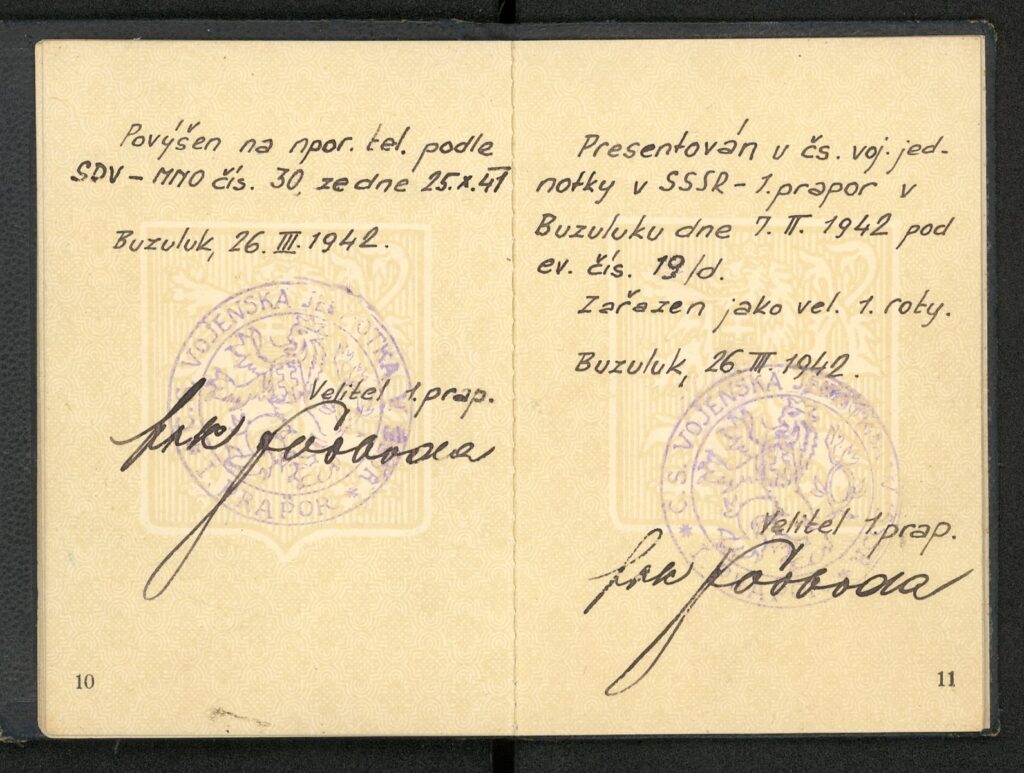 Povýšen na npor. tel. podle
SDV - MMO čís. 30, ze dne 25.X.41
Buzuluk, 26. III. 1942.
VOJENSKÁ JEDNOTKA V SSSR
Velitel 1. prap.
pplk Svoboda
* 1. PRAPOR *
10
Presentován u čs. voj. jed-
notky v SSSR - 1. prapor v
Buzuluku dne 7. II. 1942 pod
ev. čís. 19/d.
Zařazen jako vel. 1. roty.
Buzuluk, 26. III. 1942.
* Č.S. VOJENSKÁ
Velitel 1. prap.
pplk Svoboda
11